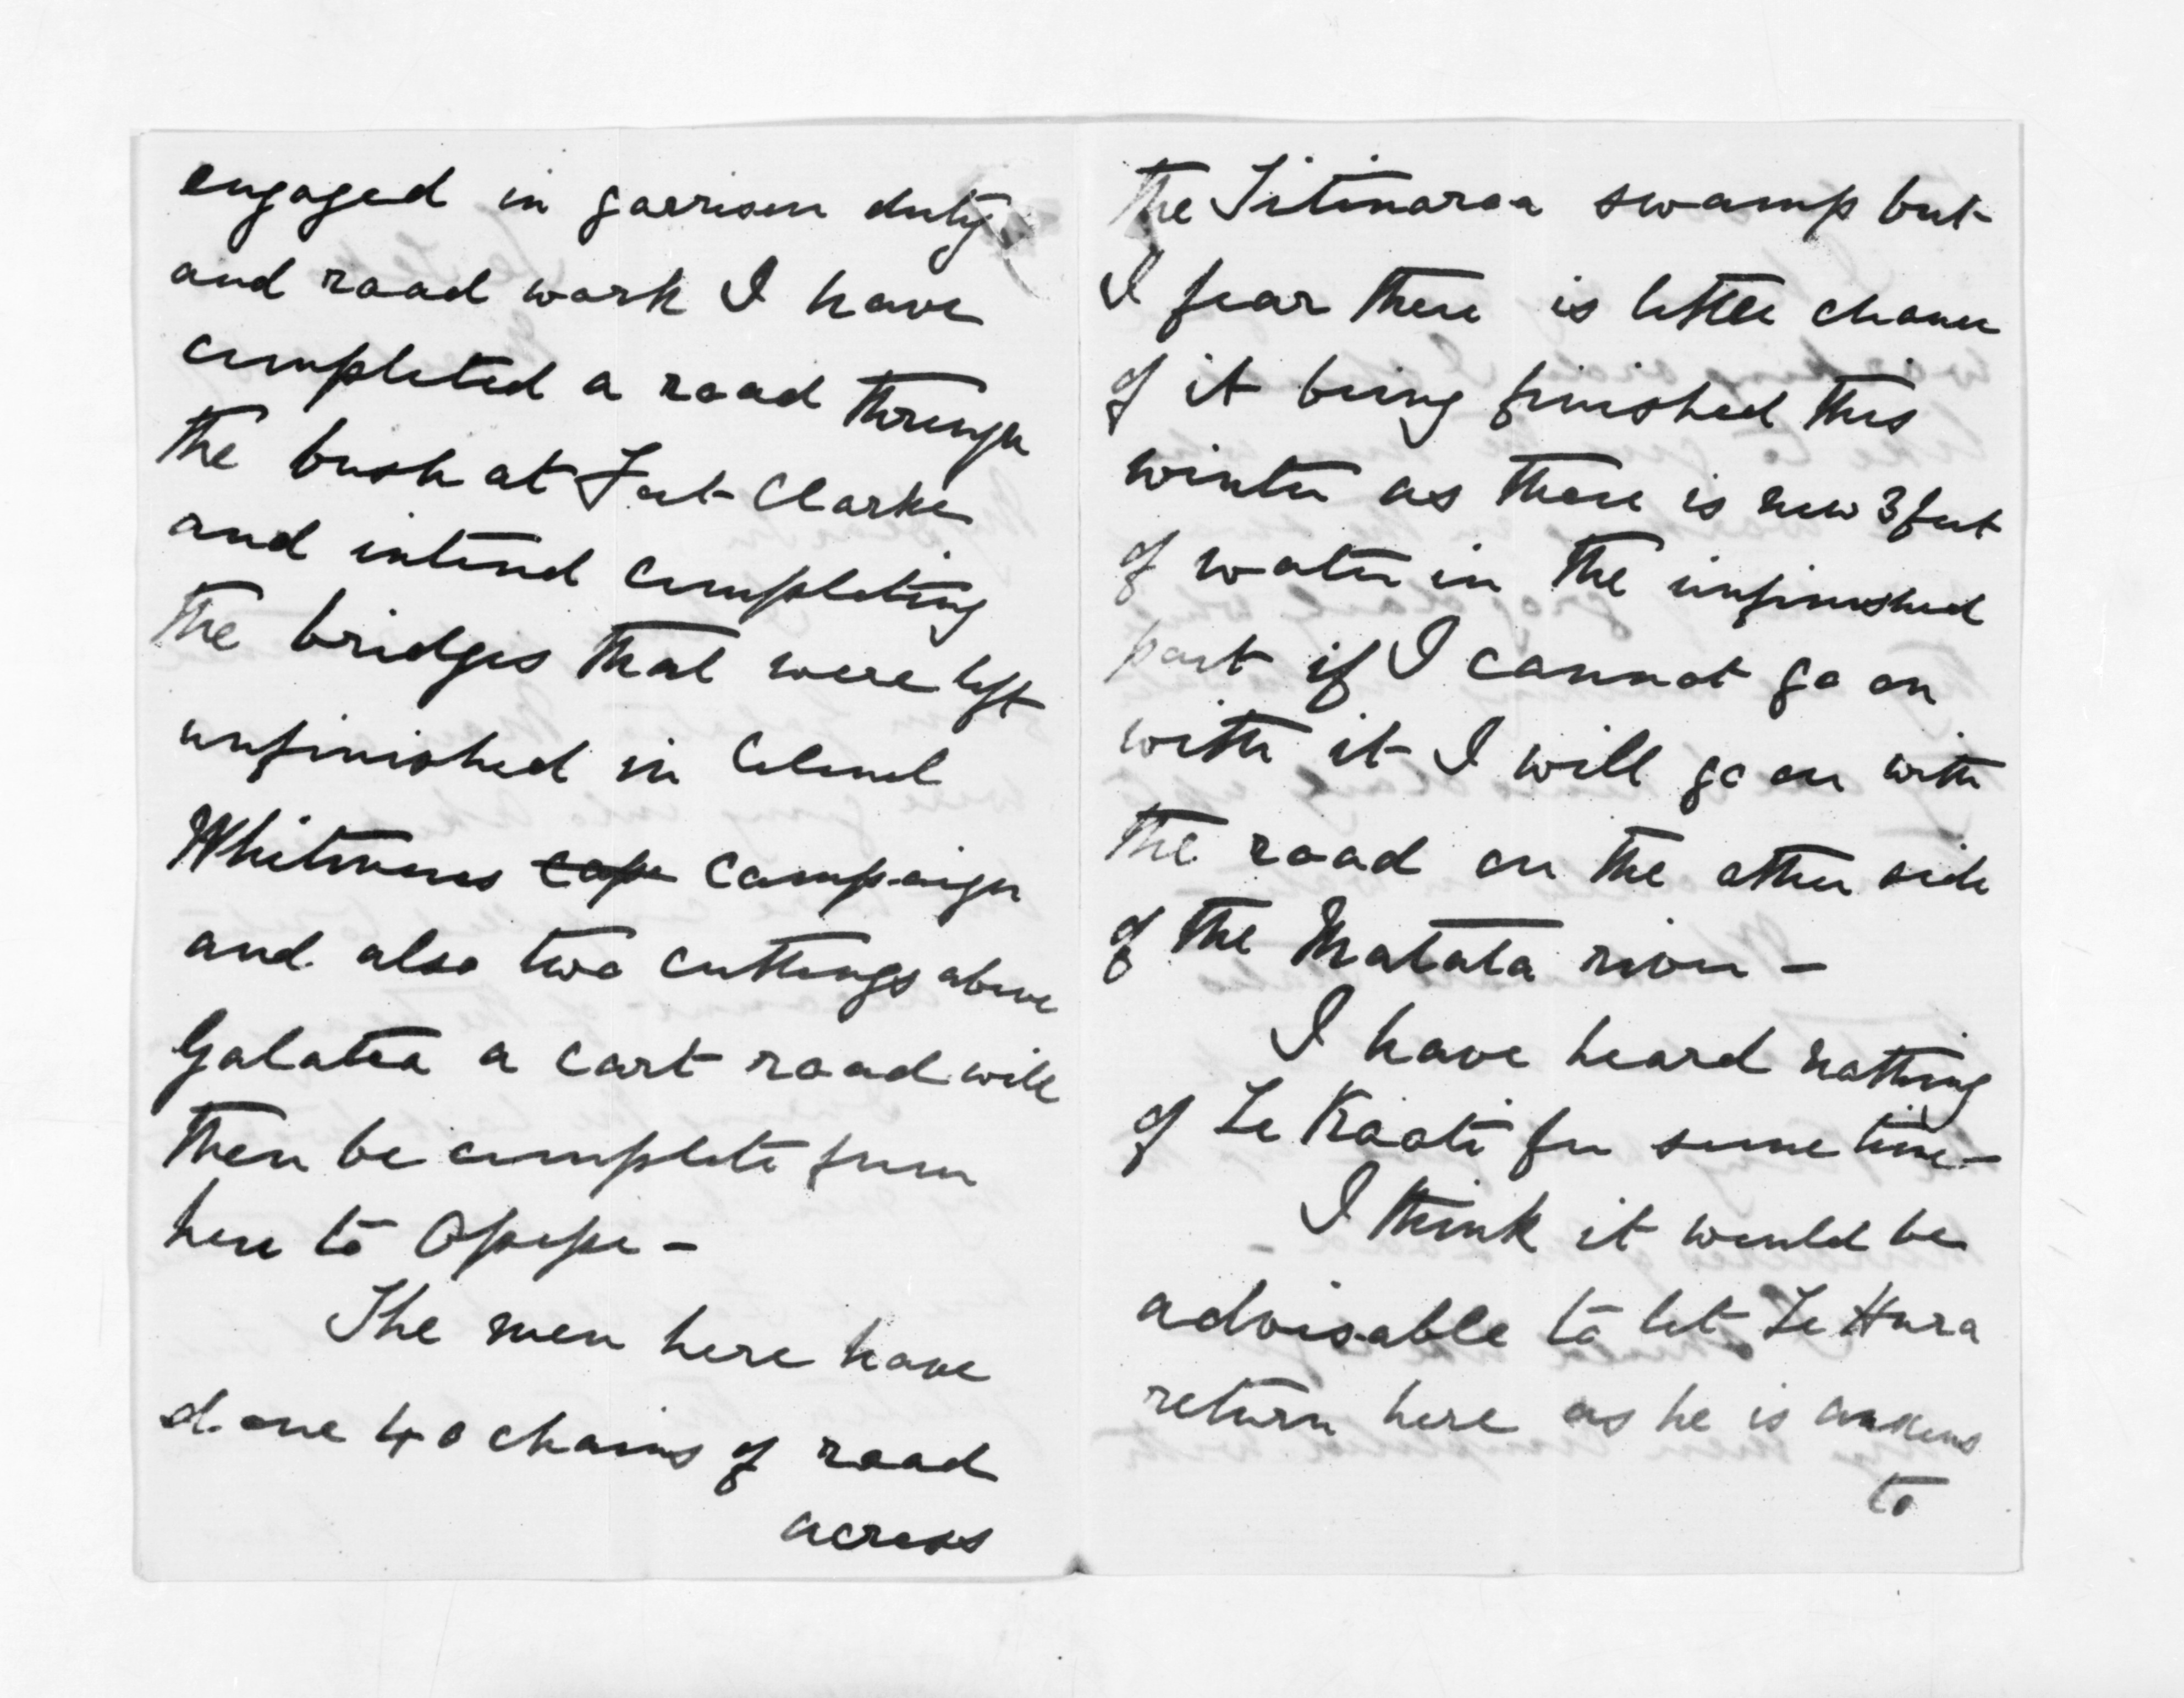 engaged in garrison duty
and road work I have
completed a road through
the bush at Fort Clarke
and intend completing
the bridges that were left
unfinished in Colonel
Whitmores cape campaign
and also two cuttings above
Galatea a cart road will
then be complete from
here to Opepe -
The men here have
done 40 chains of road
across
the Titinaroa swamp but
I fear there is little chance
of it being finished this
winter as there is now 3 feet
of water in the unfinished
part if I cannot go on
with it I will go on with
the road on the other side
of the Matata river -
I have heard nothing
of Te Kooti for some time -
I think it would be
advisable to let Te Hura
return here as he is anxious
to